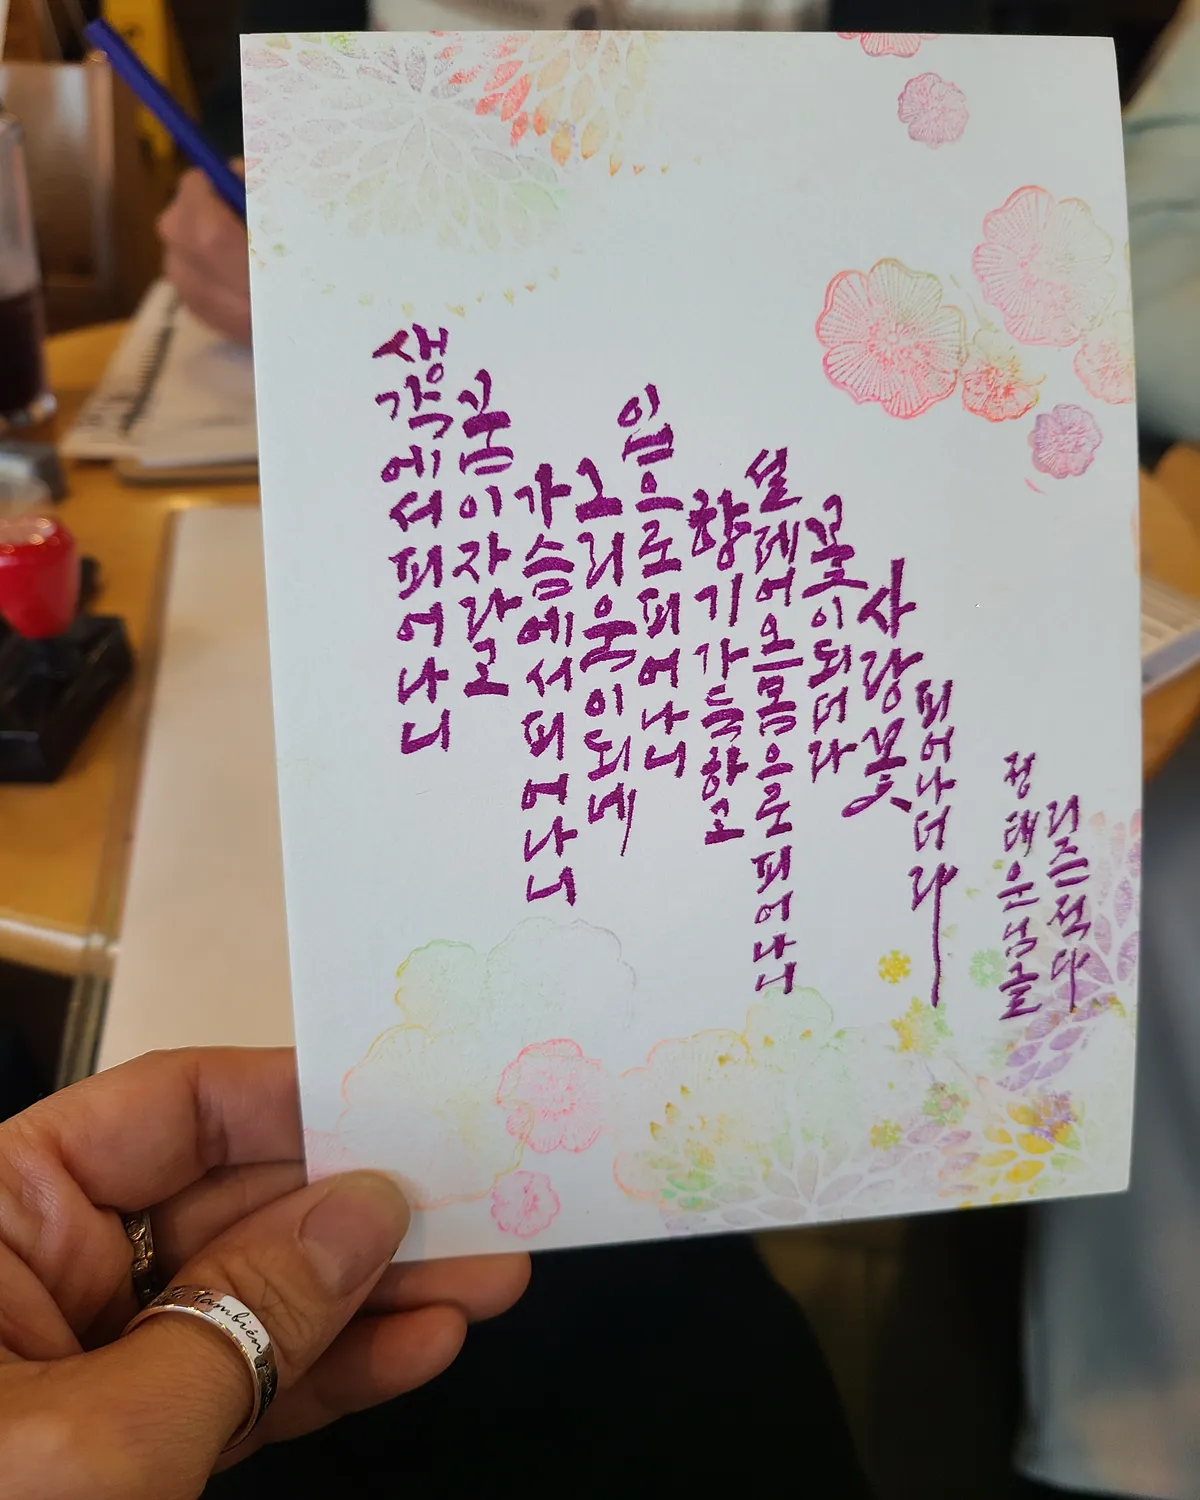 생각에서피어나니
꿈이자라고
가슴에서피어나니
그리움이되네
입으로피어나니
향기가득하고
설레어온몸으로피어나니
꽃이되더라
사랑꽃
피어나더라
정태운님글
리즌적다
también